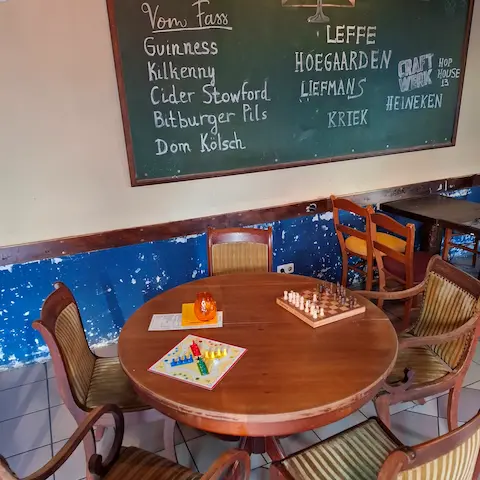 Vom Fass
Guinness
Kilkenny
Cider Stowford
Bitburger Pils
Dom Kölsch
LEFFE
HOEGAARDEN
LIEFMANS
KRIEK
CRAFT
WERK
HOP
HOUSE
13
HEINEKEN